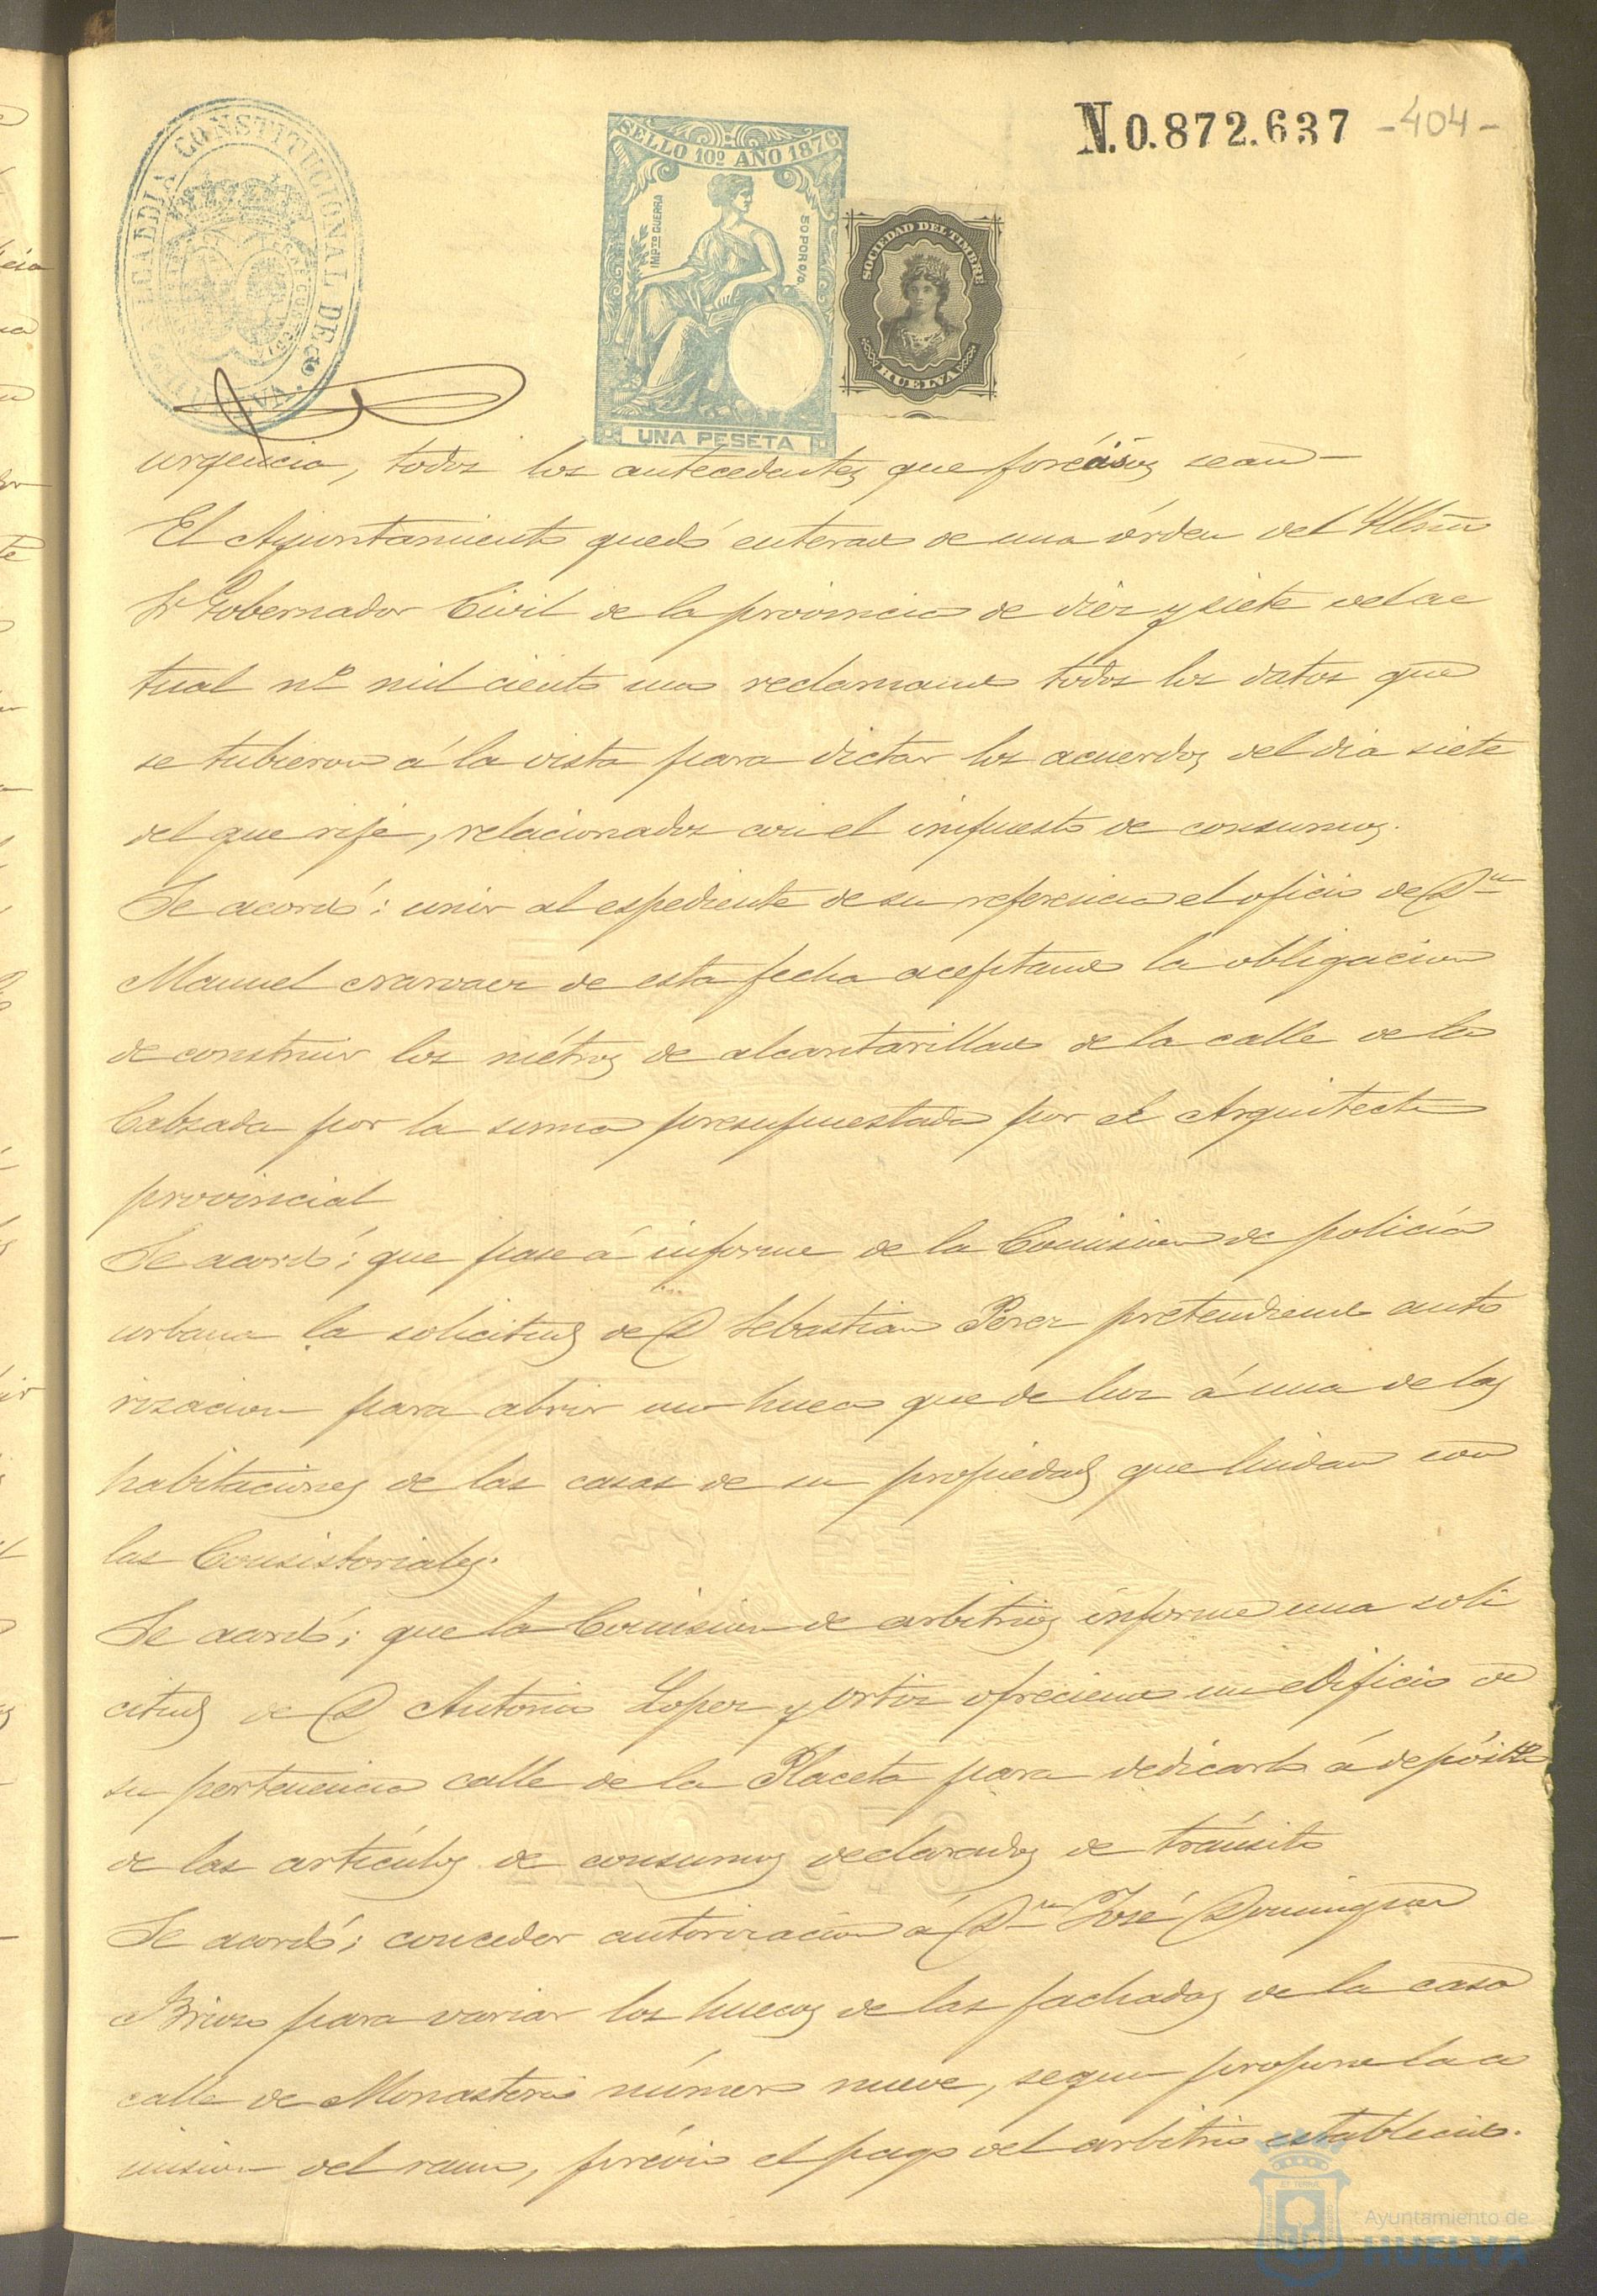 N.0.872.637 -404-
ALCALDIA CONSTITUCIONAL DE HUELVA.
SELLO 10º AÑO 1876
IMPTO GUERRA
50 POR %
UNA PESETA
SOCIEDAD DEL TIMBRE
HUELVA
urgencia, todos los antecedentes que precisos sean
El Ayuntamiento quedó enterado de una órden del Illmo
Sr Gobernador Civil de la provincia de diez y siete del ac
tual nº mil ciento uno reclamando todos los datos que
se tubieron á la vista para dictar los acuerdos del dia siete
del que rije, relacionados con el impuesto de consumos.
Se acordó: unir al espediente de su referencia el oficio de Dn
Manuel Narvaez de esta fecha aceptando la obligacion
de construir los métros de alcantarillado de la calle de la
Calzada por la suma presupuestada por el Arquitecto
provincial
Se acordó: que pase á informe de la Comision de policía
urbana la solicitud de D Sebastian Perez pretendiendo auto
rizacion para abrir un hueco que de luz á una de las
habitaciones de las casas de su propiedad que lindan con
las Consistoriales.
Se acordó; que la Comision de arbitrios informe una soli
citud de D Antonio Lopez y Ortiz ofreciendo un edificio de
su pertenencia calle de la Placeta para dedicarlo á depósito
de los artículos de consumos declarados de tránsito
Se acordó; conceder autorizacion á Dn José Dominguez
para variar los huecos de las fachadas de la casa
calle de Monasterio número nueve, segun propone la co
mision del ramo, prévio el pago del arbitrio establecido.
AÑO 1876
Ayuntamiento de
HUELVA